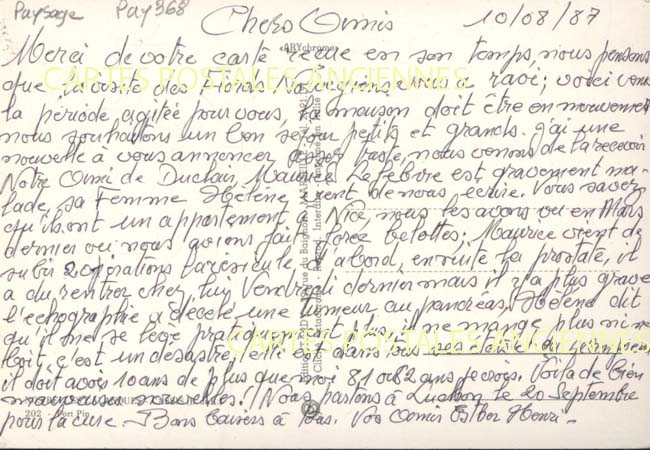 Paysage Pay368
Chers Amis 10/08/87
Merci de votre carte reçue en son temps, nous pensons
que la visite des Floralies vous a ravi; voici venu
la période agitée pour vous, la maison doit être en mouvement
nous souhaitons un bon séjour petits et grands. j'ai une
nouvelle à vous annoncer assez triste, nous venons de la recevoir
Notre Ami de Duclair Maurice Lefebvre est gravement ma-
lade, sa Femme Hélène vient de nous écrire. Vous savez
qu'ils ont un appartement à Nice, nous les avons vu en Mars
dernier où nous avions fait forez belottes; Maurice vient de
subir 2 opérations la vésicule d'abord, ensuite la prostate, il
a du rentrer chez lui Vendredi dernier mais il y a plus grave
l'échographie a décelé une tumeur au pancréas, Hélène dit
qu'il ne se lève pratiquement plus, il ne mange plus ni ne
boit, c'est un désastre, elle est dans tous ses états
il doit avoir 10 ans de plus que moi 81 ou 82 ans je crois. Voilà de bien
mauvaises nouvelles! Nous partons à Luchon le 20 Septembre
202 - Port Pin
pour la cure. Bons baisers à tous. Vos Amis Esther Henri -
CARTES POSTALES ANCIENNES
CARTES POSTALES ANCIENNES